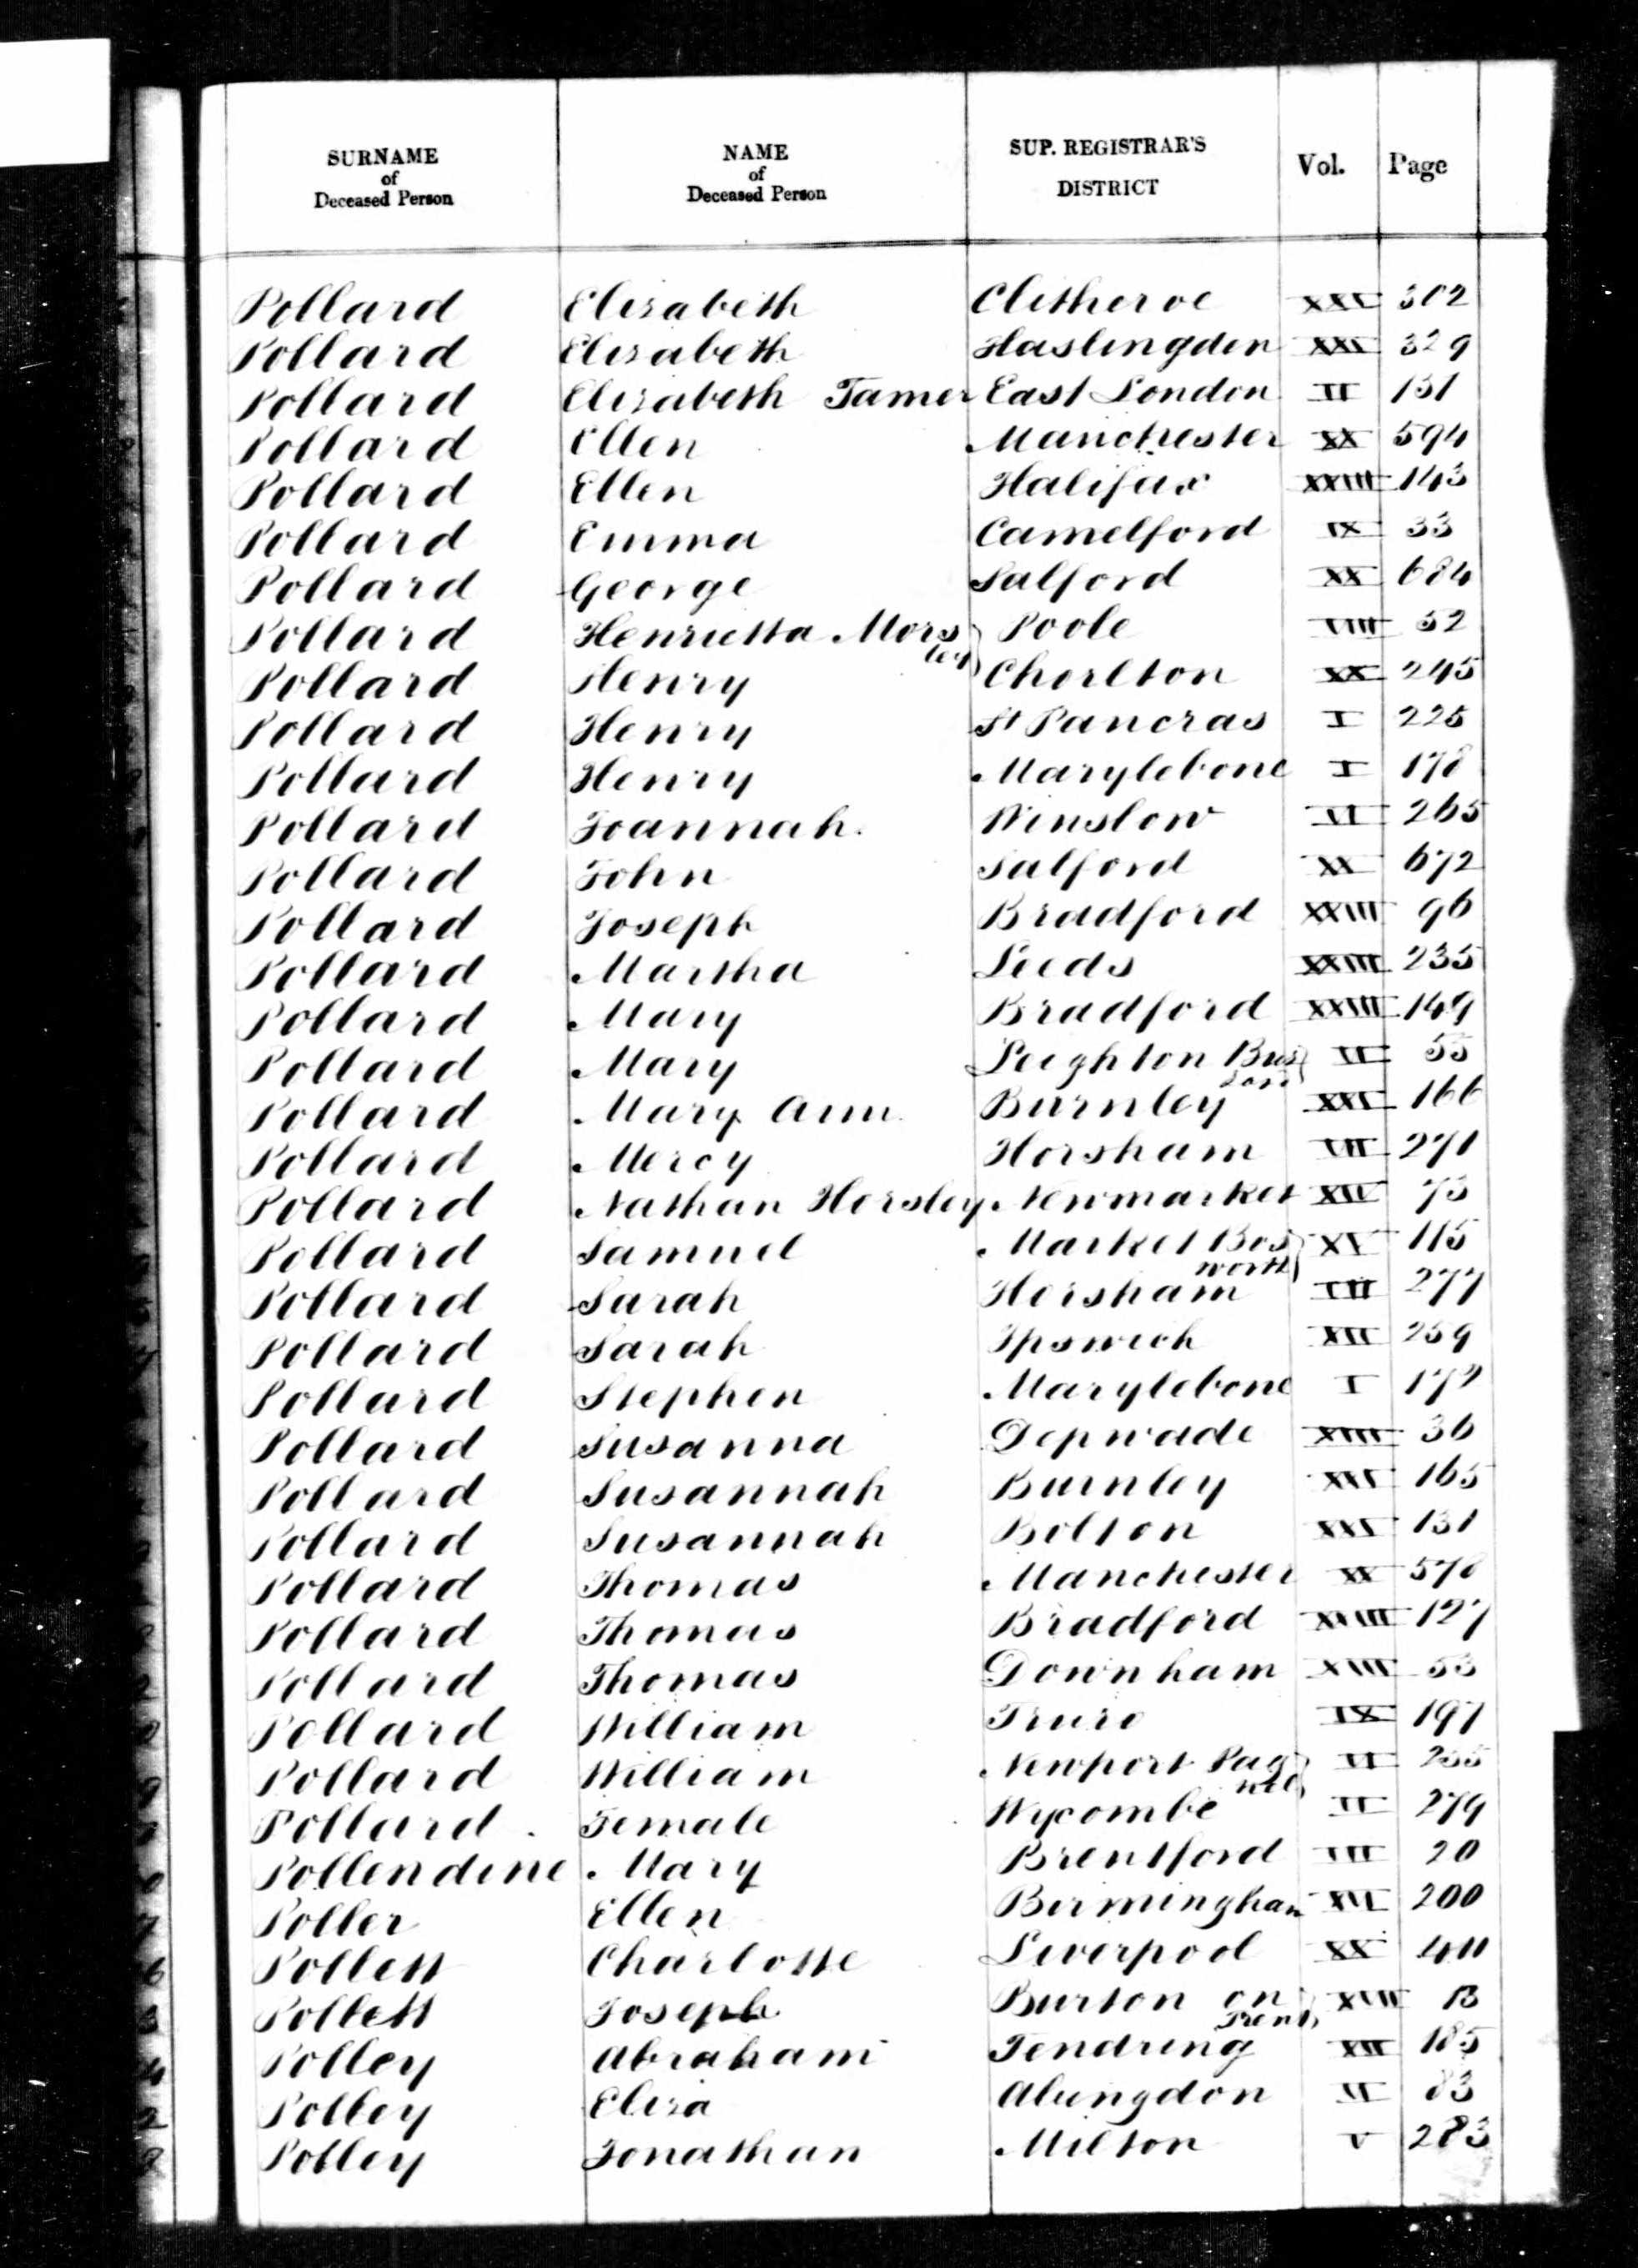 SURNAME of Deceased Person NAME of Deceased Person SUP. REGISTRAR'S DISTRICT Vol. Page
Pollard Elizabeth Clitheroe XXI 302
Pollard Elizabeth Haslingden XXI 329
Pollard Elizabeth Tamer East London II 131
Pollard Ellen Manchester XX 594
Pollard Ellen Halifax XXIII 143
Pollard Emma Camelford IX 33
Pollard George Salford XX 684
Pollard Henrietta Morsley Poole VIII 52
Pollard Henry Chorlton XX 245
Pollard Henry St Pancras I 225
Pollard Henry Marylebone I 178
Pollard Joannah Winslow VI 265
Pollard John Salford XX 672
Pollard Joseph Bradford XXIII 96
Pollard Martha Leeds XXIII 235
Pollard Mary Bradford XXIII 149
Pollard Mary Leighton Buzzard VI 55
Pollard Mary Ann Burnley XXI 166
Pollard Mercy Horsham VII 271
Pollard Nathan Horsley Newmarket XIII 73
Pollard Samuel Market Bosworth XV 115
Pollard Sarah Horsham VII 277
Pollard Sarah Ipswich XII 259
Pollard Stephen Marylebone I
Pollard Susanna Depwade XIII 36
Pollard Susannah Burnley XXI 165
Pollard Susannah Bolton XXI 131
Pollard Thomas Manchester XX 578
Pollard Thomas Bradford XXIII 127
Pollard Thomas Downham XIII 53
Pollard William Truro IX 197
Pollard William Newport Pagnel VI 255
Pollard Female Wycombe VI 279
Pollendine Mary Brentford III 20
Poller Ellen Birmingham XVI 200
Pollett Charlotte Liverpool XX 411
Pollett Joseph Burton on Trent XVII 13
Polley Abraham Tendring XII 185
Polley Eliza Abingdon VI 83
Polley Jonathan Milton V 283